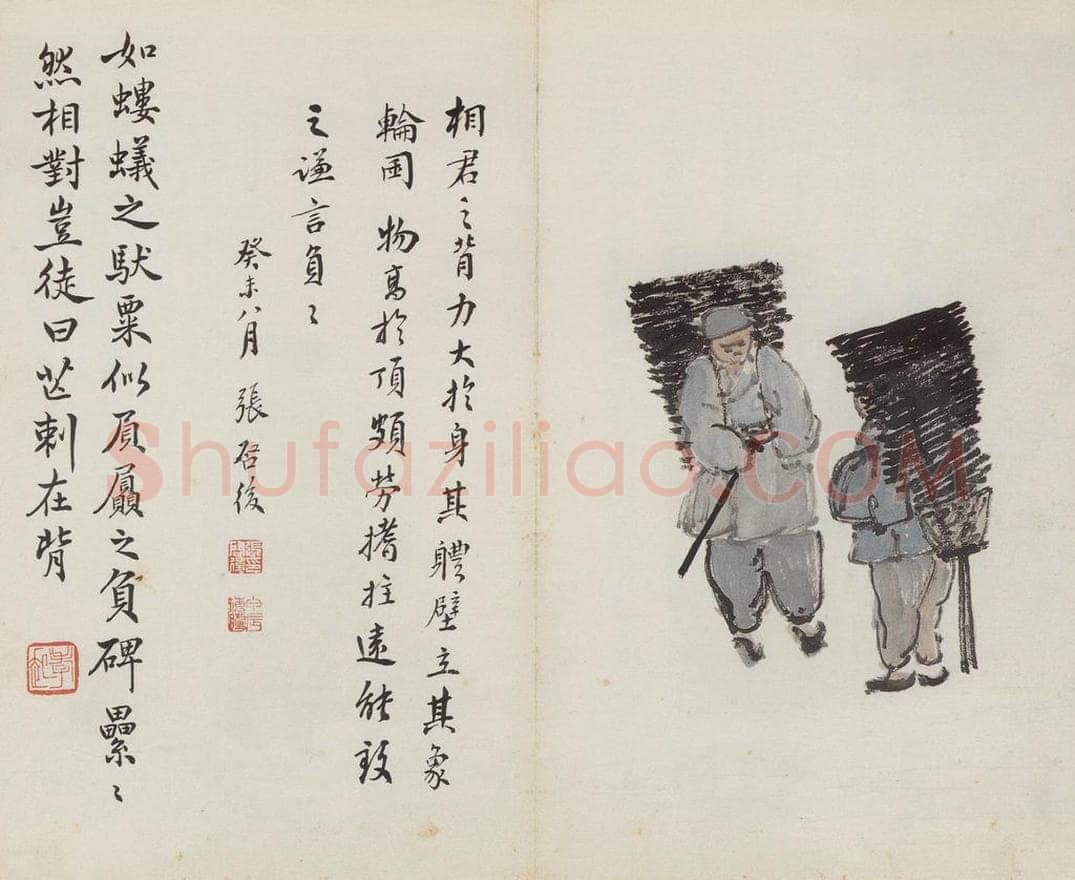 相君之背力大於身其軆壁立其象
輪囷物高於頂頗劳搘拄遠能致
之謙言負〻
癸未八月 張启後
如螻蟻之馱粟似屓屭之負碑纍〻
然相對豈徒曰芒刺在背
Shufaziliao.COM